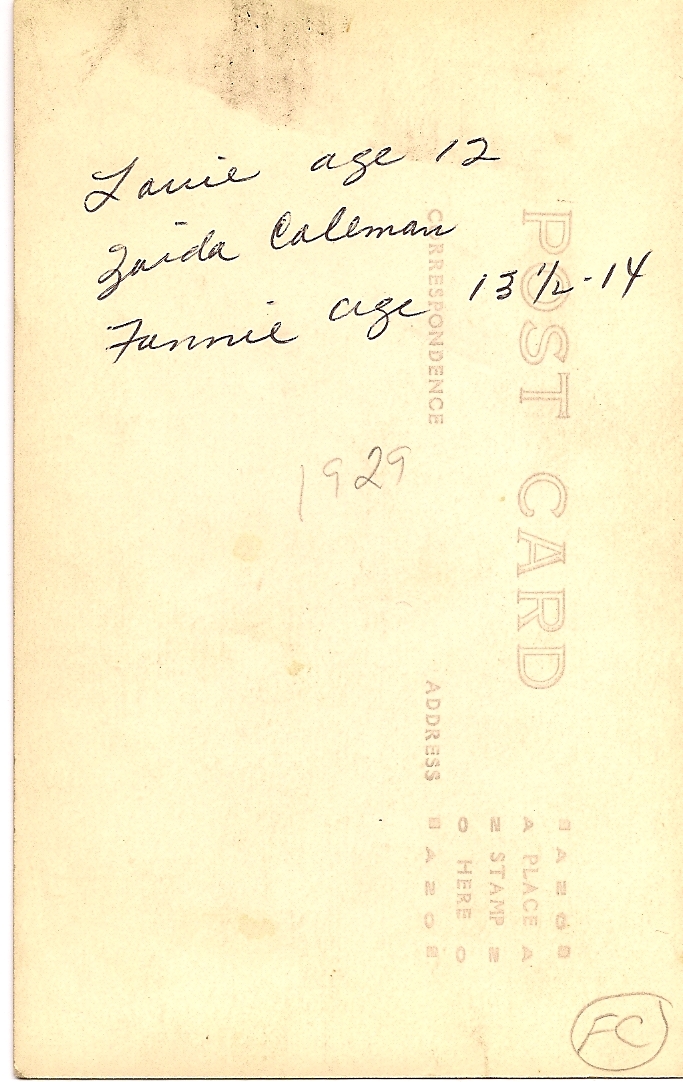 Louie age 12
Zaida Coleman
Fannie age 13 ½-14
1929
POST CARD
CORRESPONDENCE
ADDRESS
A Z O
A PLACE A
Z STAMP Z
O HERE O
A Z O
FC